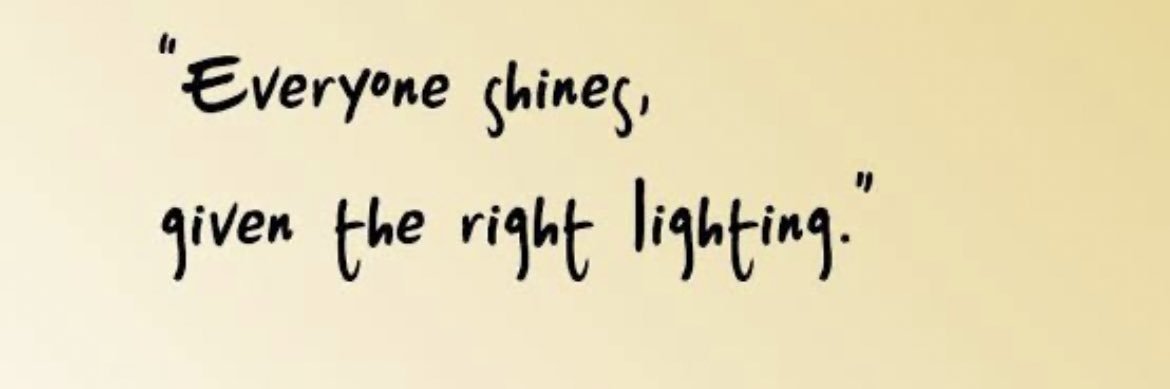 "Everyone shines,
given the right lighting."